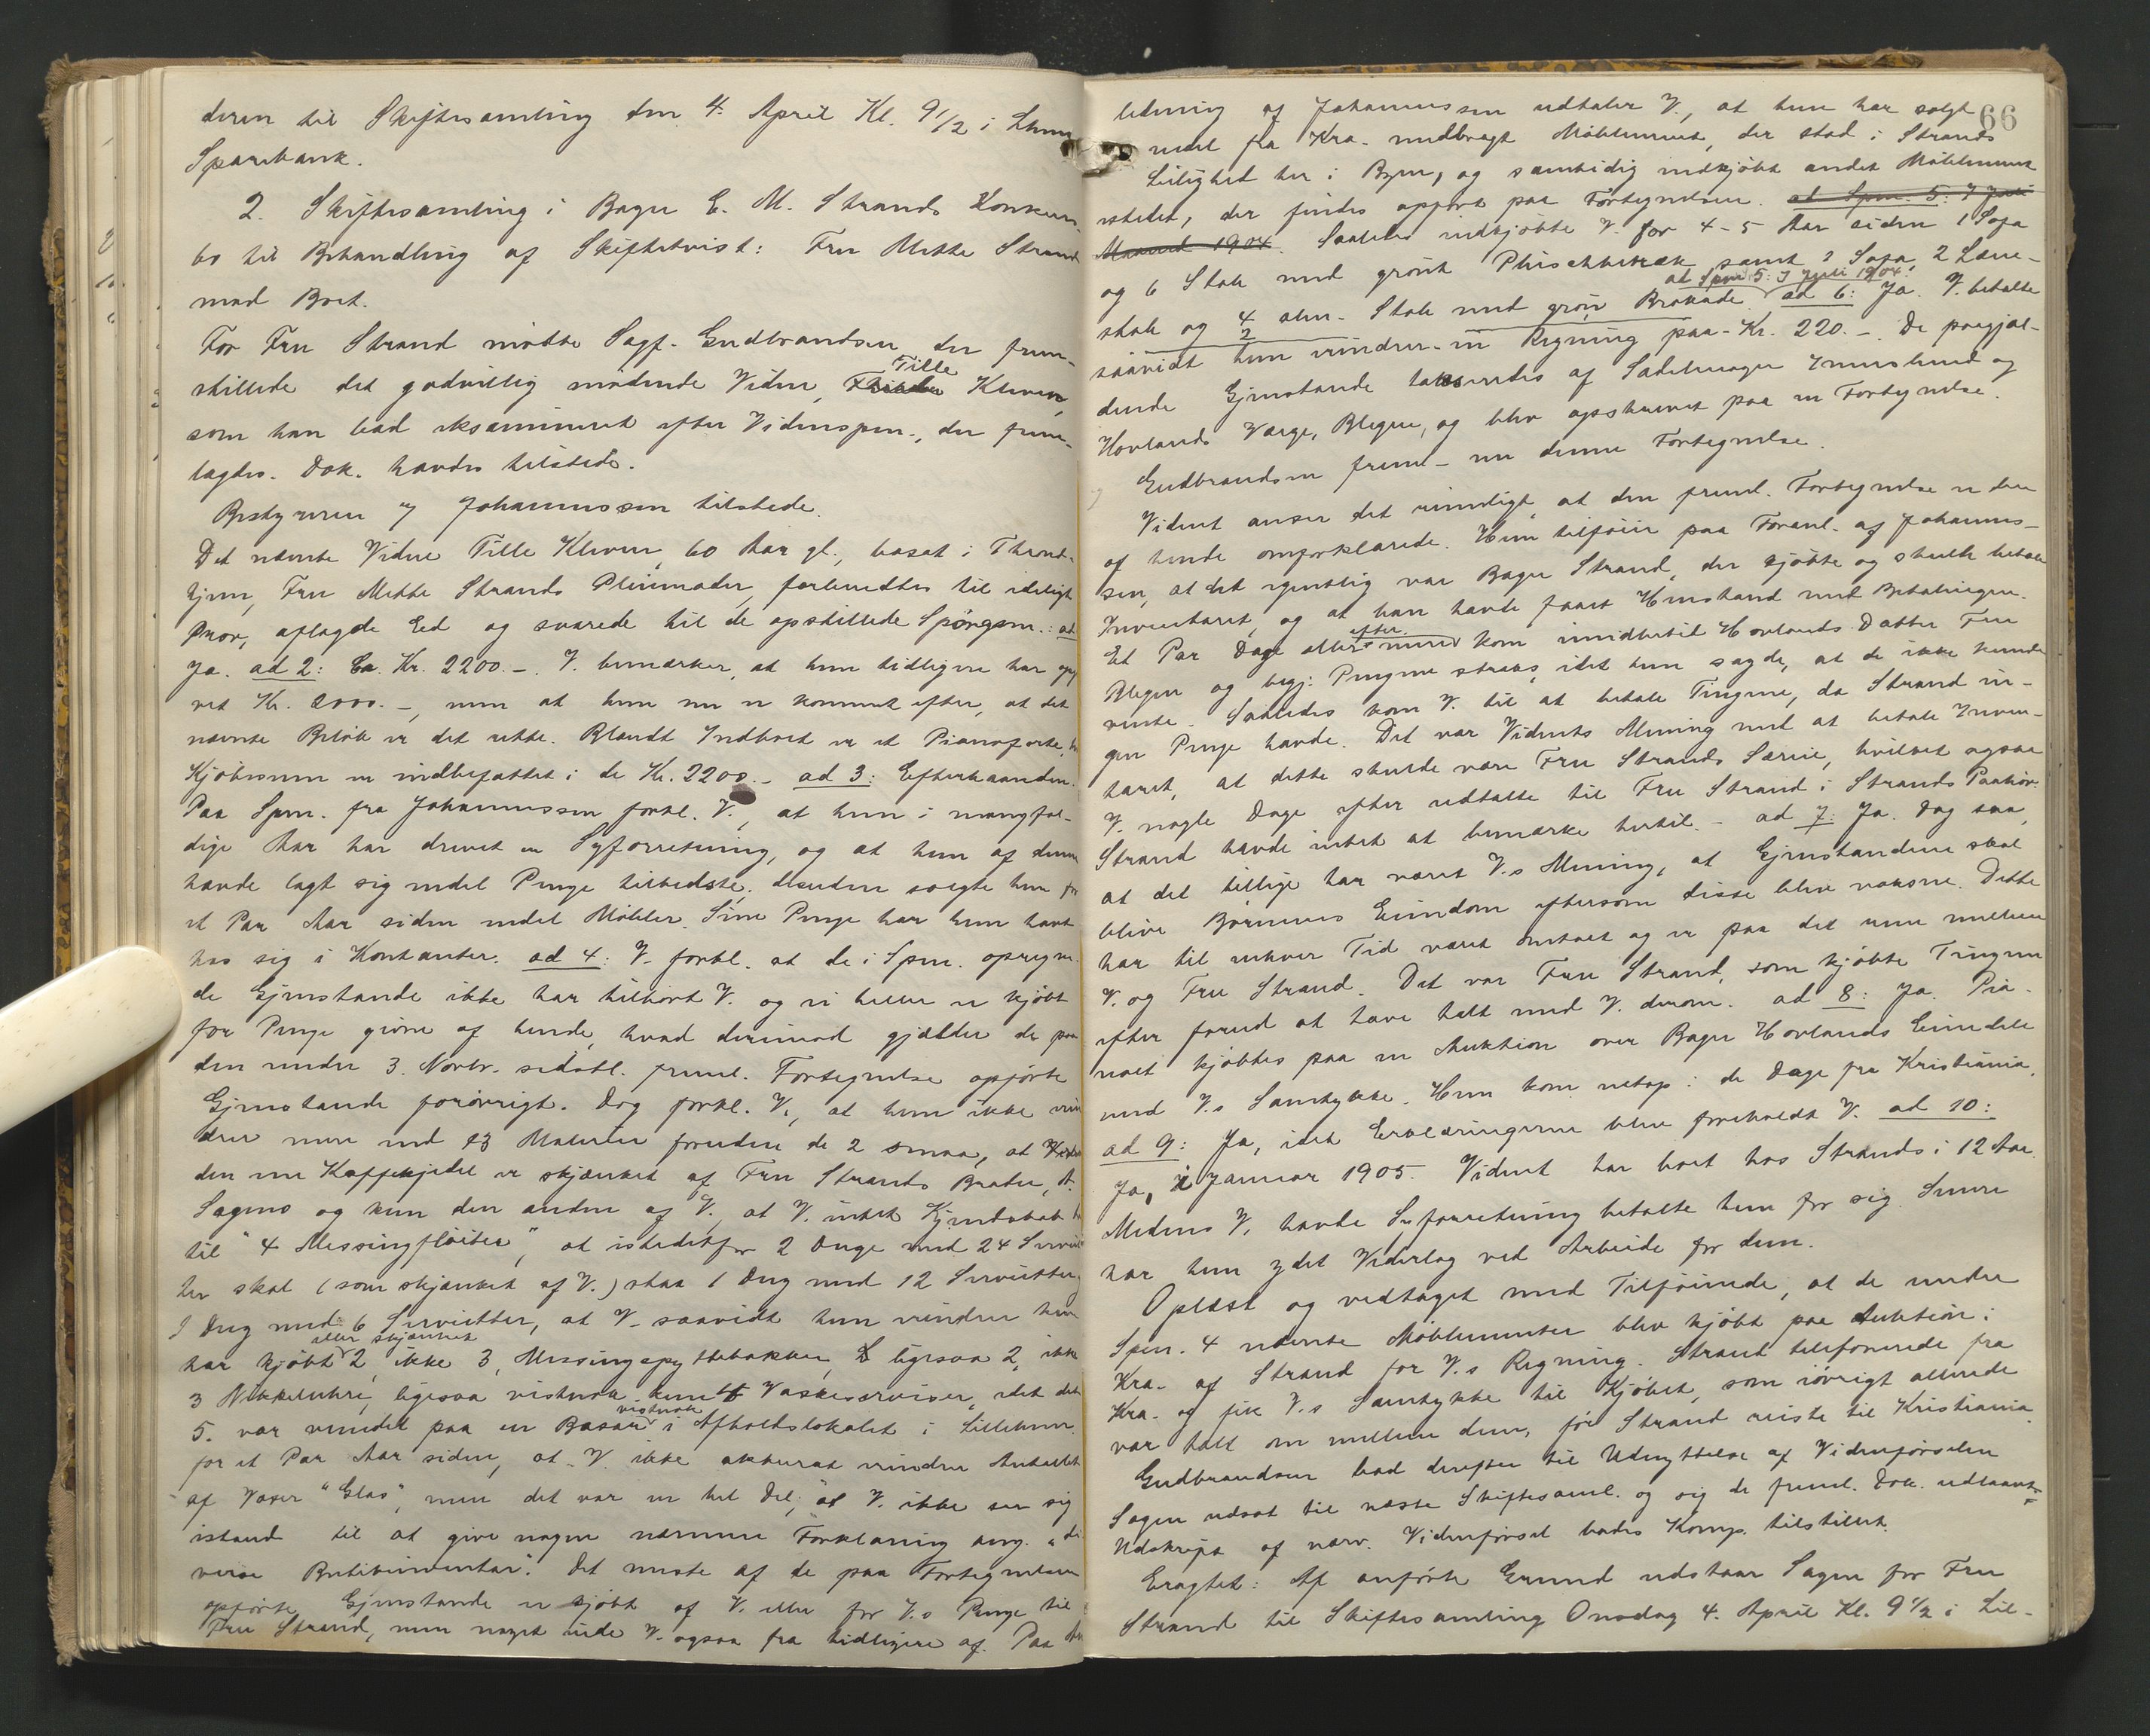 deren til Skiftesamling den 4. April Kl. 9 1/2 i Lhmr
Sparebank.
2. Skiftesamling i Bager E. M. Strands Konkurs-
bo til Behandling af Skiftetvist: Fru Mette Strand
mod Boet.
For Fru Strand mødte Sagf. Gudbrandsen der frem-
stillede det godvillig mødende Vidne, Tille Kleven,
som han bad eksamineret efter Vidnespm., der frem-
lagdes. Dok. havdes tilstede.
Bestyreren og Johannessen tilstede.
Det nævnte Vidne Tille Kleven, 60 Aar gl., bosat i Thrond-
hjem, Fru Mette Strands Pleiemoder, forberedtes til edeligt
Prov, aflagde Ed og svarede til de opstillede Spørgsm.: ad
Ja. ad 2: Ca. Kr. 2200.-. V. bemærker, at hun tidligere har opgi
vet Kr. 2000.-, men at hun nu er kommet efter, at det
nævnte Beløb er det rette. Blandt Indboet er et Pianoforte,
Kjøbesum er indbefattet i de Kr. 2200.- ad 3: Efterhaanden.
Paa Spm. fra Johannessen forkl. V., at hun i mangfol-
dige Aar har drevet en Syforretning, og at hun af denne
havde lagt sig endel Penge tilbedste, desuden solgte hun for
et Par Aar siden endel Møbler. Sine Penge har hun havt
hos sig i Kontanter. ad 4: V. forkl. at de i Spm. opregne-
de Gjenstande ikke har tilhørt V. og ei heller er kjøbt
for Penge givne af hende, hvad derimod gjælder de paa
den under 3. Novbr. sidstl. freml. Fortegnelse opførte
Gjenstande forøvrigt. Dog forkl. V., at hun ikke erin
drer mere end 13 Malerier foruden de 2 smaa, at
den ene Kaffekjedel er skjænket af Fru Strands Broder, A.
Sagmo og kun den anden af V., at V. intet Kjendskab har
til "4 Messingfløiter", at istedetfor 2 Duge med 24 Serviet
ter skal (som skjænket af V.) staa 1 Dug med 12 Servietter,
1 Dug med 6 Servietter, at V. saavidt hun erindrer kun
har kjøbt eller skjænket 2, ikke 3, Messingspyttebakker, ligesaa 2, ikke
3 Nikkeluhre, ligesaa vistnok kun 4 Vaskeserviser, idet det
5. var vundet paa en Basar vistnok i Afholdslokalet i Lillehmr.
for et Par Aar siden, at V. ikke akkurat erindrer Antallet
af Vaser "Glas", men det var en hel Del, at V. ikke ser sig
istand til at give nogen nærmere Forklaring ang. "di
verse Butikinventar". Det meste af de paa Fortegnelsen
opførte Gjenstande er kjøbt af V. eller for V.s Penge til
Fru Strand, men noget eiede V. ogsaa fra tidligere af. Paa An
66
ledning af Johannessen udtaler V., at hun har solgt
endel fra Kra. medbragt Møblement, der stod i Strands
Leilighed her i Byen, og samtidig indkjøbt andet Møblement
istedet, der findes opført paa Fortegnelsen. ad Spm. 5: I Juli
Maaned 1904. Saaledes indkjøbte V. for 4-5 Aar siden 1 Sofa
og 6 Stole med grønt Plüschbetræk samt 1 Sofa, 2 Læne-
stole og 4 alm. Stole med grøn Brokade ad Spm. 5: I Juli 1904. ad 6: Ja. V. betalte
saavidt hun erindrer en Regning paa Kr. 220.-. De paagjæl-
dende Gjenstande taksertes af Sadelmager Imeslund og
Hovlands Værge, Blegen, og blev opskrevet paa en Fortegnelse.
Gudbrandsen freml. nu denne Fortegnelse.
Vidnet anser det rimeligt, at den freml. Fortegnelse er den
af hende omforklarede. Hun tilføier paa Foranl. af Johannes-
sen, at det egentlig var Bager Strand, der kjøbte og skulde betale
Inventaret, og at han havde faaet Henstand med Betalingen.
Et Par Dage efter kom imidlertid Hovlands Datter Fru
Blegen og begj. Pengene straks, idet hun sagde, at de ikke kunde
vente. Saaledes kom V. til at betale Tingene, da Strand in-
gen Penge havde. Det var Vidnets Mening med at betale Inven-
taret, at dette skulde være Fru Strands Særeie, hvilket ogsaa
V. nogle Dage efter udtalte til Fru Strand i Strands Paahør.
Strand havde intet at bemærke hertil.- ad 7: Ja. Dog saa,
at det tillige har været V.s Mening, at Gjenstandene skal
blive Børnenes Eiendom eftersom disse blive voksne. Dette
har til enhver Tid været omtalt og er paa det rene mellem
V. og Fru Strand. Det var Fru Strand, som kjøbte Tingene
efter forud at have talt med V. derom. ad 8: Ja. Pia-
noet kjøbtes paa en Auktion over Bager Hovlands Eiendele
med V.s Samtykke. Hun kom netop i de Dage fra Kristiania.
ad 9: Ja, idet Erklæringerne blev foreholdt V. ad 10:
Ja, i Januar 1905. Vidnet har boet hos Strands i 12 Aar.
Medens V. havde Syforretning betalte hun for sig. Senere
har hun ydet Vederlag ved Arbeide for dem.
Oplæst og vedtaget med Tilføiende, at de under
Spm. 4 nævnte Møblementer blev kjøbt paa Auktion i
Kra. af Strand for V.s Regning. Strand telefonerede fra
Kra. og fik V.s Samtykke til Kjøbet, som iøvrigt allerede
var talt om mellem dem, før Strand reiste til Kristiania.
Gudbrandsen bad derefter til Udnyttelse af Vidneførselen
Sagen udsat til næste Skiftesaml. og sig de freml. Dok. udlaant.
Udskript af nærv. Vidneførsel bades Komp. tilstillet.
Eragtet: Af anførte Grund udstaar Sagen for Fru
Strand til Skiftesamling Onsdag 4. April Kl. 9 1/2 i Lil-